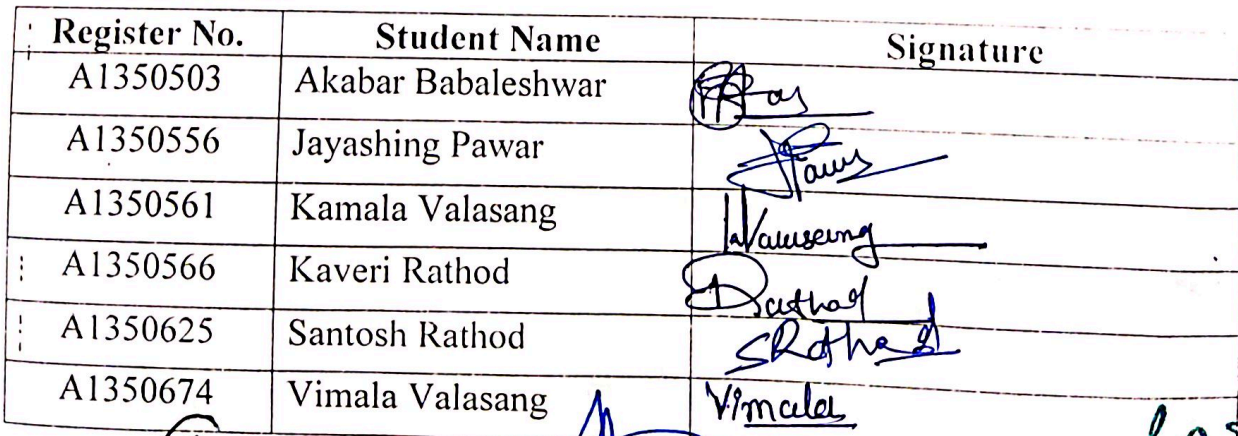 Register No. Student Name Signature
A1350503 Akabar Babaleshwar
A1350556 Jayashing Pawar
A1350561 Kamala Valasang
A1350566 Kaveri Rathod
A1350625 Santosh Rathod SRathod
A1350674 Vimala Valasang Vimala